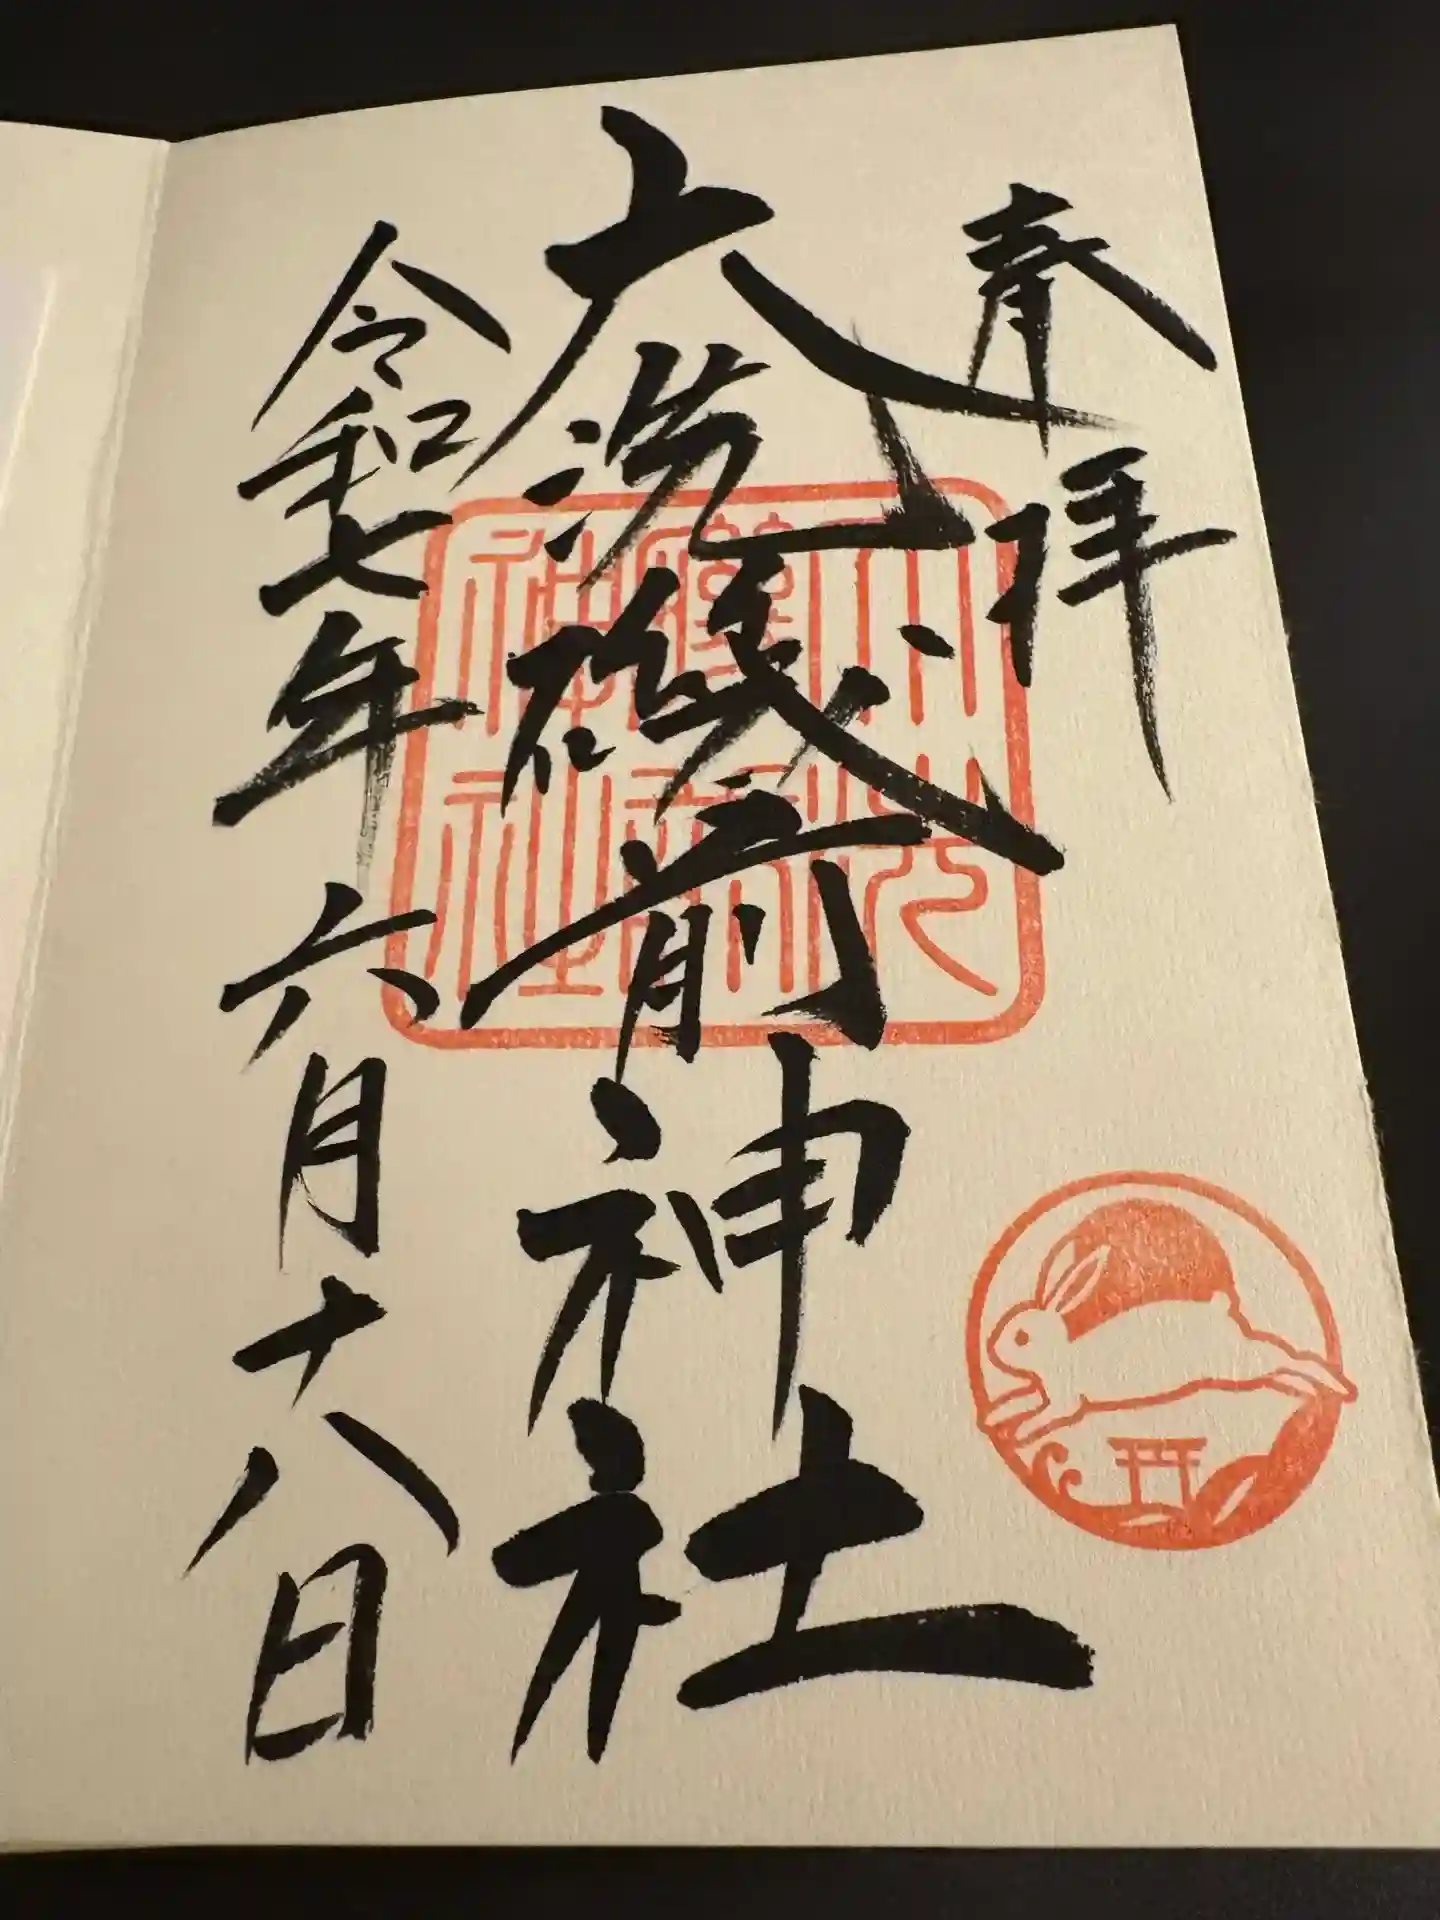 奉拝
大洗磯前神社
令和七年六月十八日
大洗磯前神社